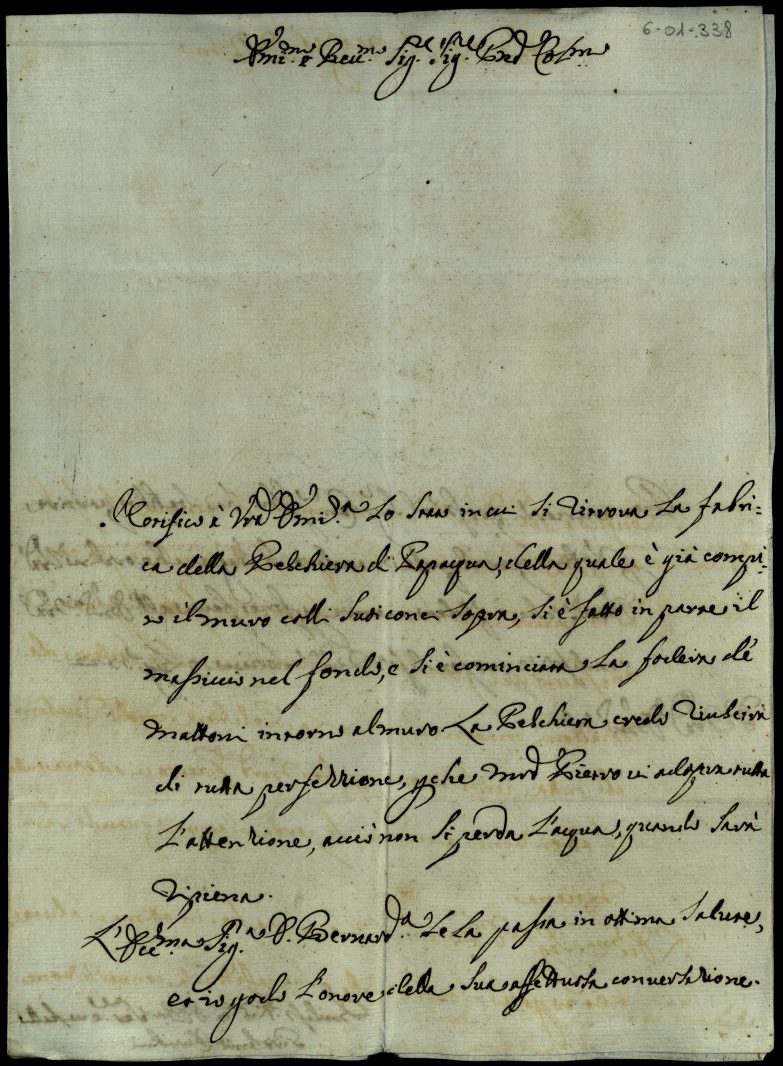 6-01-338
Emi.mo e Rev.mo Sig.re Sig.re Pad. Col.mo
Notifico à Vra Emi.a lo stato in cui si ritrova la fabri-
ca della Peschiera di Papaqua, della quale è già compi-
to il muro colli suoi conci sopra, si è fatto in parte il
massiccio nel fondo, e si è cominciata la fodera de'
mattoni intorno al muro La Peschiera credo riuscirà
di tutta perfezzione, p che mrõ Pietro vi adopra tutta
l'attenzione, acciò non si perda l'acqua, quando sarà
ripiena.
L'Ecc.ma Sig.a D. Bernard.a se la passa in ottima salute,
et io godo l'onore della sua affettuosa conversazione.